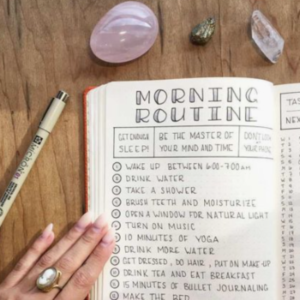 MORNING
ROUTINE
GET ENOUGH
SLEEP!
BE THE MASTER OF
YOUR MIND AND TIME
WAKE UP BETWEEN 6:00-7:00AM
DRINK WATER
TAKE A SHOWER
BRUSH TEETH AND MOISTURIZE
OPEN A WINDOW FOR NATURAL LIGHT
TURN ON MUSIC
10 MINUTES OF YOGA
DRINK MORE WATER
GET DRESSED, DO HAIR, PUT ON MAKE-UP
DRINK TEA AND EAT BREAKFAST
15 MINUTES OF BULLET JOURNALING
MAKE THE BED